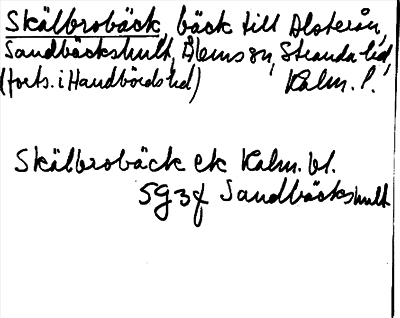 Skälbrobäck, bäck till Alsterån,
Sandbäckshult, Ålems sn, Stranda hd,
(forts. i Handbörds hd) Kalm. l.
Skälbrobäck ek Kalm. bl.
5g3f Sandbäckshult